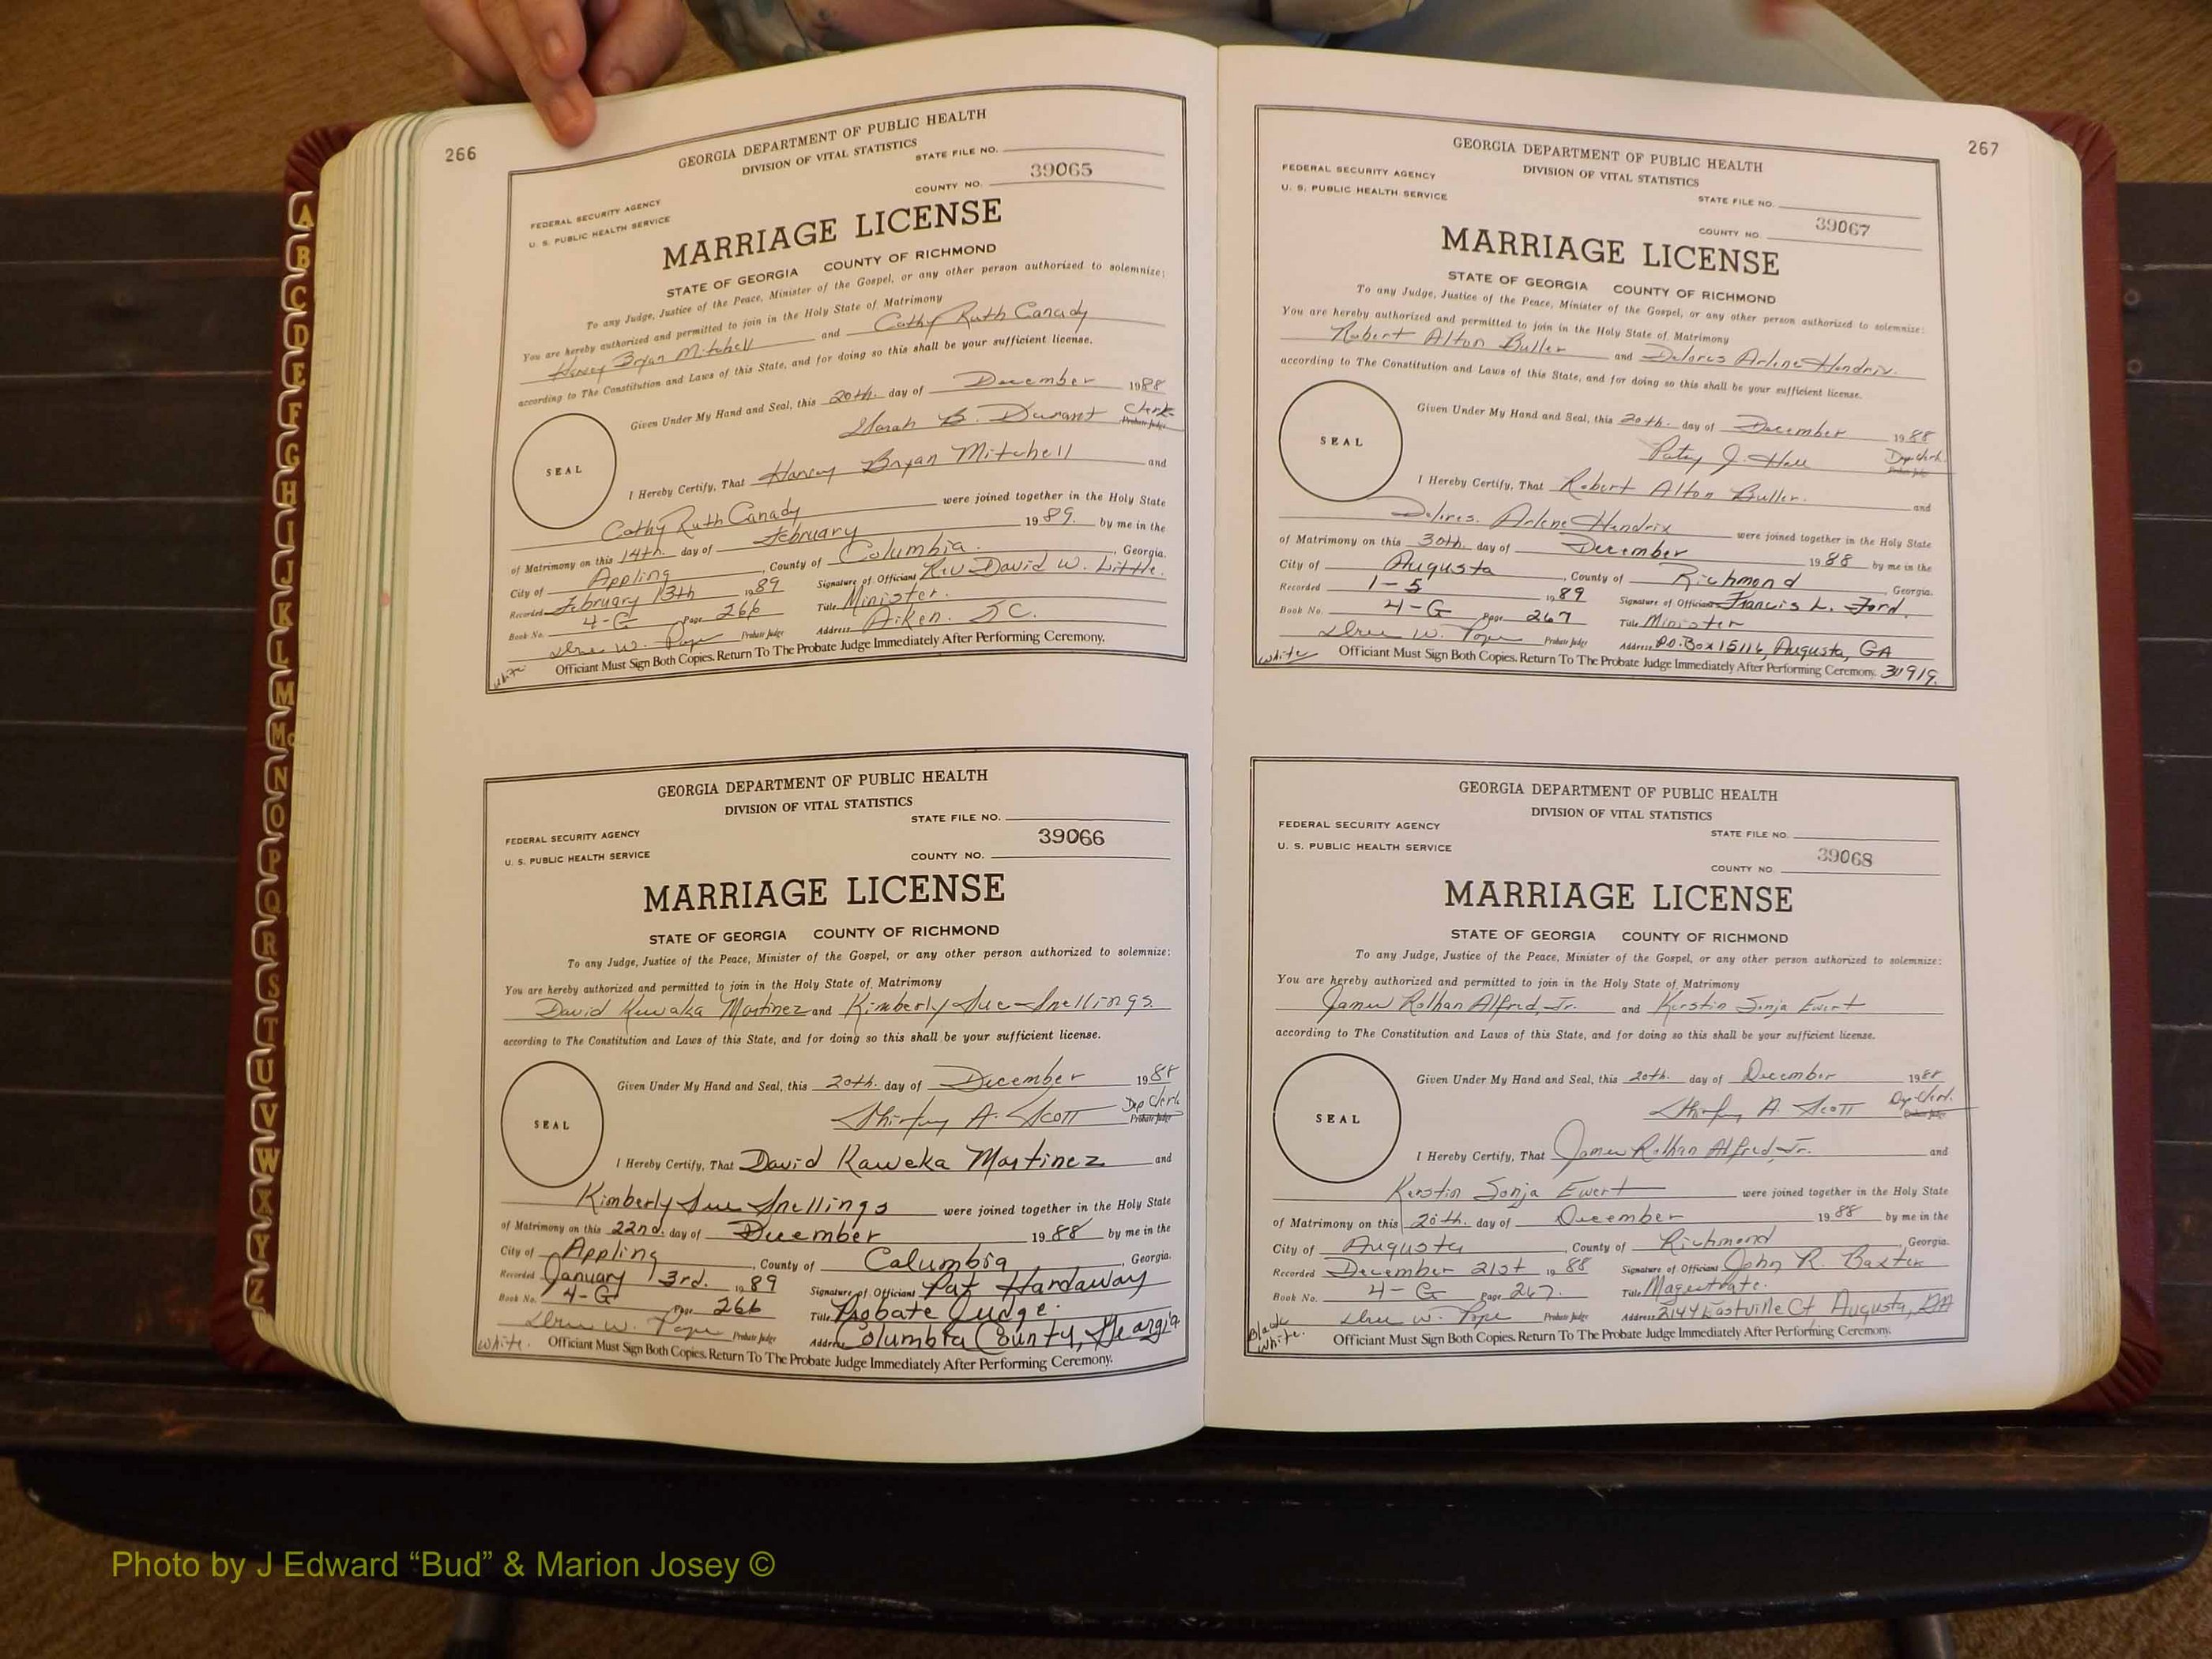 266
GEORGIA DEPARTMENT OF PUBLIC HEALTH
DIVISION OF VITAL STATISTICS
STATE FILE NO.
39065
COUNTY NO.
FEDERAL SECURITY AGENCY
U. S. PUBLIC HEALTH SERVICE
MARRIAGE LICENSE
STATE OF GEORGIA COUNTY OF RICHMOND
To any Judge, Justice of the Peace, Minister of the Gospel, or any other person authorized to solemnize:
You are hereby authorized and permitted to join in the Holy State of Matrimony
Bryan Mitchell and Cathy Ruth Canady
according to The Constitution and Laws of this State, and for doing so this shall be your sufficient license.
Given Under My Hand and Seal, this 20th. day of December 1988
Sarah B. Durant Clerk
Probate Judge
SEAL
I Hereby Certify, That Bryan Mitchell and
Cathy Ruth Canady were joined together in the Holy State
of Matrimony on this 14th. day of February 1989. by me in the
City of Appling, County of Columbia, Georgia.
Recorded February 13th 1989 Signature of Officiant Rev David W. Little.
Book No. 4-G Page 266 Title Minister.
W. Pope Probate Judge Address Aiken. S.C.
White Officiant Must Sign Both Copies. Return To The Probate Judge Immediately After Performing Ceremony.
GEORGIA DEPARTMENT OF PUBLIC HEALTH
DIVISION OF VITAL STATISTICS
STATE FILE NO.
39066
FEDERAL SECURITY AGENCY
U. S. PUBLIC HEALTH SERVICE
COUNTY NO.
MARRIAGE LICENSE
STATE OF GEORGIA COUNTY OF RICHMOND
To any Judge, Justice of the Peace, Minister of the Gospel, or any other person authorized to solemnize:
You are hereby authorized and permitted to join in the Holy State of Matrimony
David Martinez and Kimberly Sue Snellings
according to The Constitution and Laws of this State, and for doing so this shall be your sufficient license.
Given Under My Hand and Seal, this 20th. day of December 1988
Shirley A. Scott Dep Clerk
Probate Judge
SEAL
I Hereby Certify, That David Kaweka Martinez and
Kimberly Sue Snellings were joined together in the Holy State
of Matrimony on this 22nd. day of December 1988 by me in the
City of Appling, County of Columbia, Georgia.
Recorded January 3rd. 1989 Signature of Officiant Pat Hardaway
Book No. 4-G Page 266 Title Probate Judge.
W. Pope Probate Judge Address Columbia County, Georgia
White. Officiant Must Sign Both Copies. Return To The Probate Judge Immediately After Performing Ceremony.
267
GEORGIA DEPARTMENT OF PUBLIC HEALTH
DIVISION OF VITAL STATISTICS
FEDERAL SECURITY AGENCY
U. S. PUBLIC HEALTH SERVICE
STATE FILE NO.
39067
COUNTY NO.
MARRIAGE LICENSE
STATE OF GEORGIA COUNTY OF RICHMOND
To any Judge, Justice of the Peace, Minister of the Gospel, or any other person authorized to solemnize:
You are hereby authorized and permitted to join in the Holy State of Matrimony
Robert Alton Buller and Delores Arlene Hendrix.
according to The Constitution and Laws of this State, and for doing so this shall be your sufficient license.
Given Under My Hand and Seal, this 20th. day of December 1988
Patsy J. Hall Dep. Clerk
Probate Judge
SEAL
I Hereby Certify, That Robert Alton Buller. and
Delores. Arlene Hendrix were joined together in the Holy State
of Matrimony on this 30th. day of December 1988 by me in the
City of Augusta, County of Richmond, Georgia.
Recorded 1-5 1989 Signature of Officiant Francis L. Ford.
Book No. 4-G Page 267 Title Minister
W. Pope Probate Judge Address P.O. Box 15116, Augusta, GA
White Officiant Must Sign Both Copies. Return To The Probate Judge Immediately After Performing Ceremony. 30919.
GEORGIA DEPARTMENT OF PUBLIC HEALTH
DIVISION OF VITAL STATISTICS
FEDERAL SECURITY AGENCY
U. S. PUBLIC HEALTH SERVICE
STATE FILE NO.
39068
COUNTY NO.
MARRIAGE LICENSE
STATE OF GEORGIA COUNTY OF RICHMOND
To any Judge, Justice of the Peace, Minister of the Gospel, or any other person authorized to solemnize:
You are hereby authorized and permitted to join in the Holy State of Matrimony
James Rolhan Alfred, Jr. and Kerstin Sonja Ewert
according to The Constitution and Laws of this State, and for doing so this shall be your sufficient license.
Given Under My Hand and Seal, this 20th. day of December 1988
Shirley A. Scott Dep. Clerk.
Probate Judge
SEAL
I Hereby Certify, That James Rolhan Alfred, Jr. and
Kerstin Sonja Ewert were joined together in the Holy State
of Matrimony on this 20th. day of December 1988 by me in the
City of Augusta, County of Richmond, Georgia.
Recorded December 21st 1988 Signature of Officiant John R. Baxter
Book No. 4-G Page 267. Title Magestrate.
W. Pope Probate Judge Address 2144 Eastville Ct Augusta, GA
Black
White. Officiant Must Sign Both Copies. Return To The Probate Judge Immediately After Performing Ceremony.
A
B
C
D
E
F
G
H
I
J
K
L
M
Mc
N
O
P
Q
R
S
T
U
V
W
X
Y
Z
Photo by J Edward “Bud” & Marion Josey ©